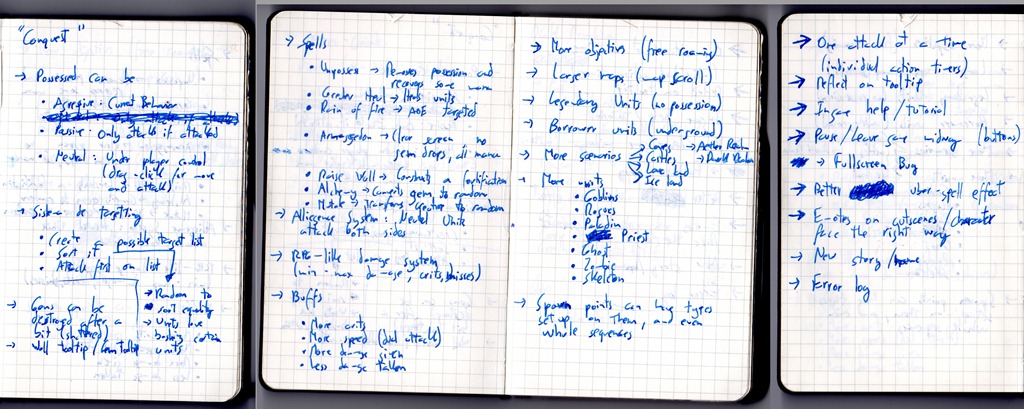 "Conquest"
→ Possessed can be
• Agressive: Current Behavior
• Passive - Only attack if attacked
• Neutral: Under player control
(drag-click for move
and attack)
→ System de targetting
• Create a possible target list
• Sort it
• Attack first on list
→ Random to
sort equality
→ Units love
bashing certain
units
→ Gems can be
destroyed after a
bit (shattered)
→ Wall tooltip / Gem tooltip
→ Spells
• Unpossess → Removes possession and
recovers some mana
• Greater Heal → Heals units
• Rain of fire → AOE targeted
• Armageddon → Clear screen no
gem drops, all mana
• Raise Wall → Constructs a fortification
• Alchemy → Converts gem to random
• Mutate → Transforms creature to random
→ Allegiance System: Neutral Units
attack both sides
→ RPG-like damage system
(min-max damage, crits, misses)
→ Buffs
• More crits
• More speed (dual attack)
• More damage given
• Less damage taken
→ More objectives (free roaming)
→ Larger maps (map scroll)
→ Legendary Units (no possession)
→ Burrower units (underground)
→ More scenarios
Caves
→ Aether Realm
Castles
→ Death Realm
Lava land
Ice land
→ More units
• Goblins
• Rogues
• Paladin
• Priest
• Ghost
• Zombie
• Skeleton
→ Spawn points can have types
set up on them, and even
whole sequences
→ One attack at a time
(individual action timers)
→ Reflect on tooltip
→ Ingame help/tutorial
→ Pause/Leave game midway (buttons)
→ Fullscreen Bug
→ Better uber-spell effect
→ Emotes on cutscenes/character
face the right way
→ New story
→ Error log